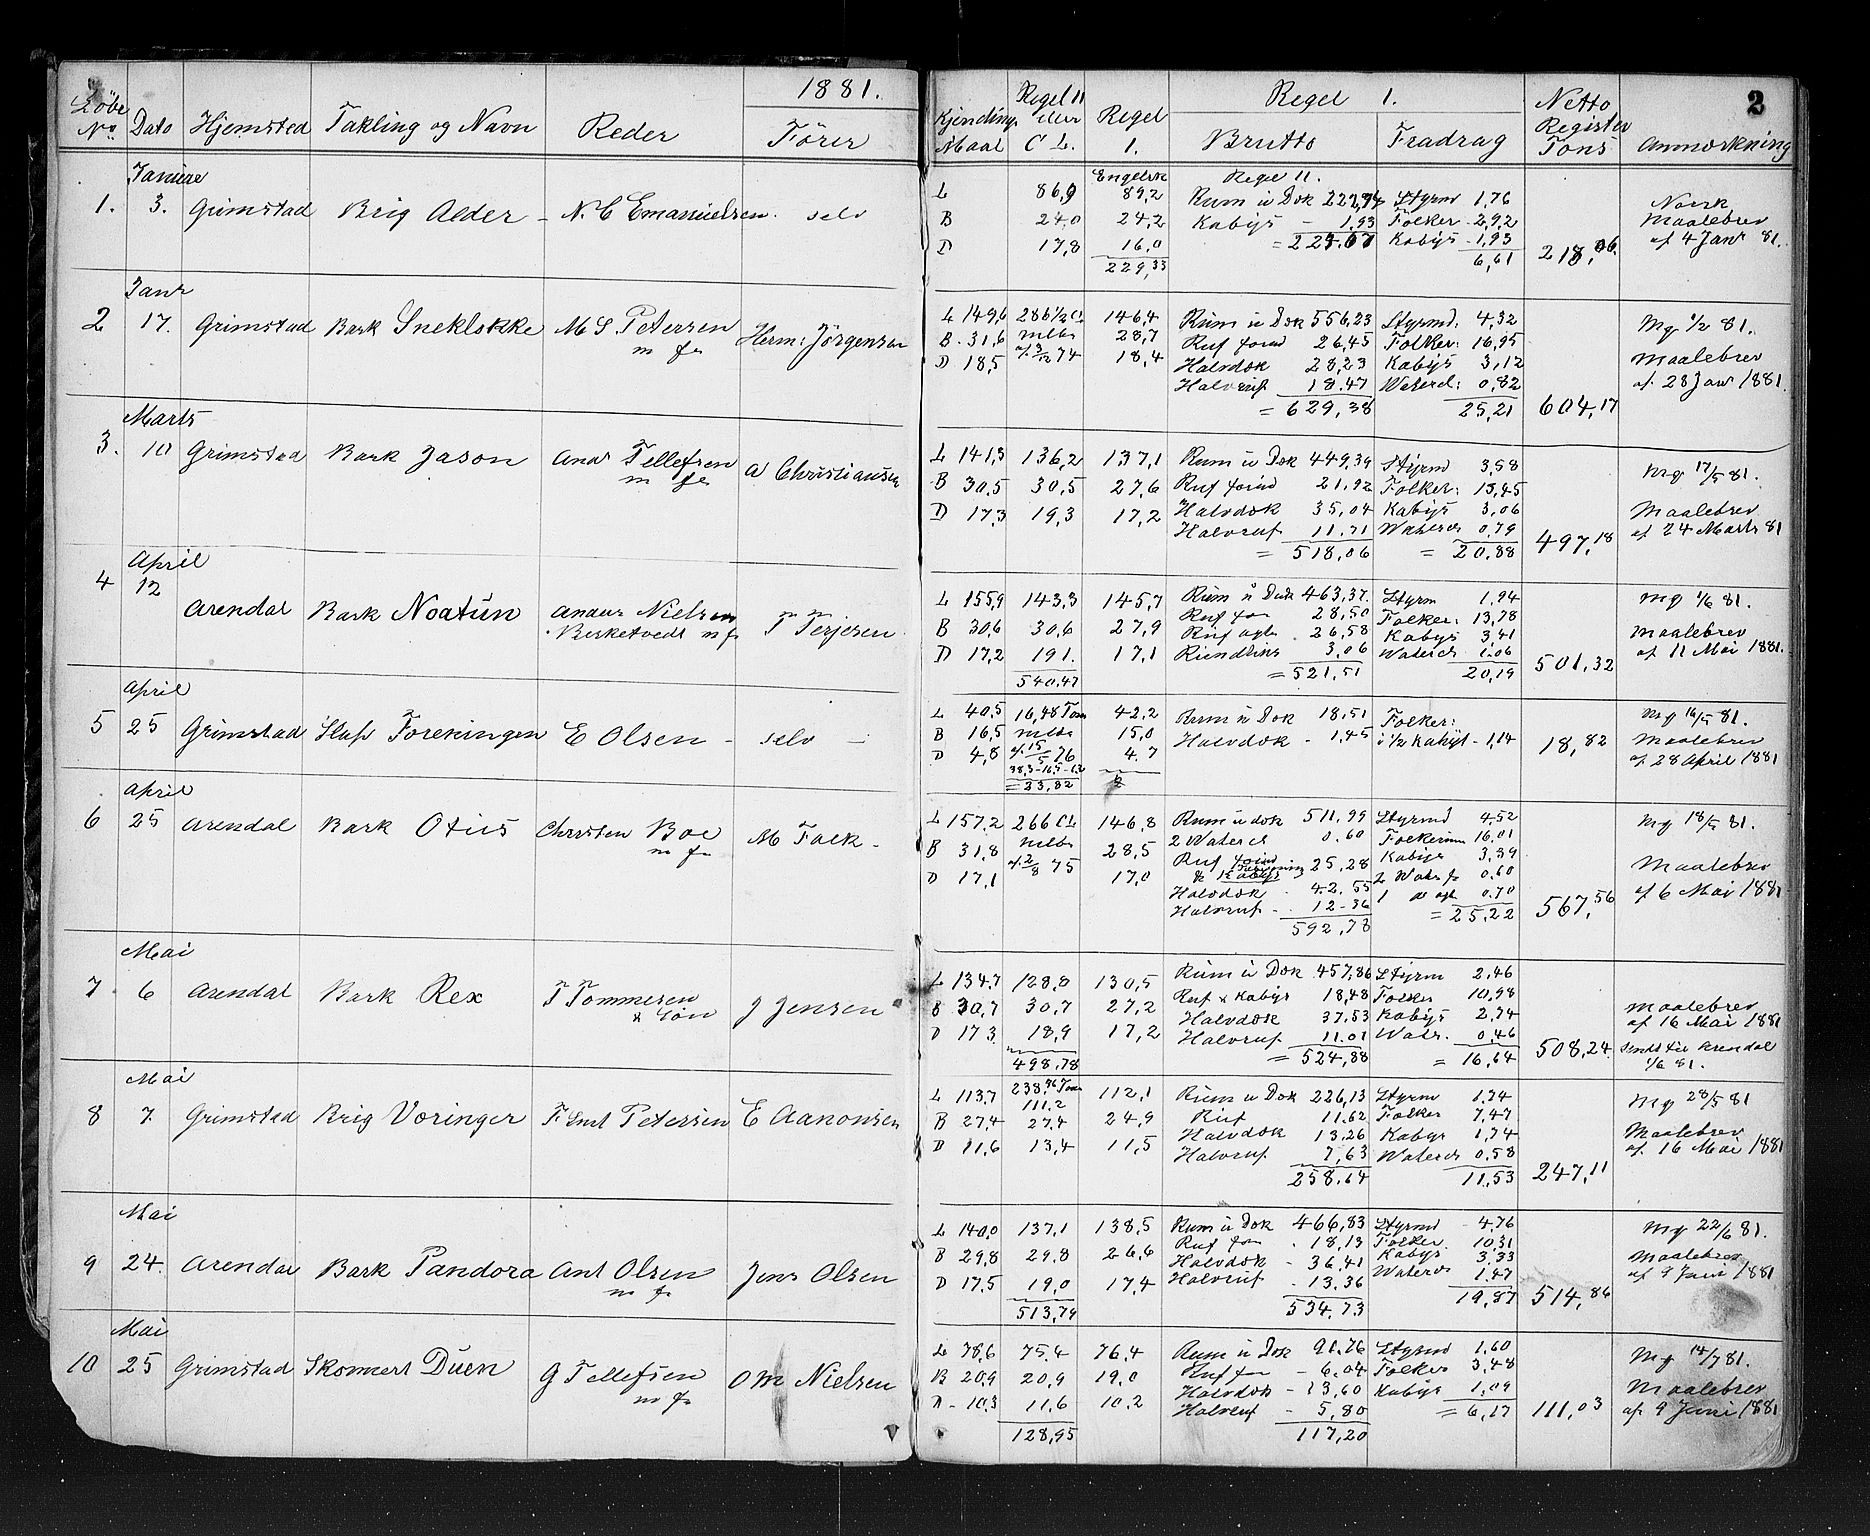 1881.
2
Löbe No. Dato Hjemsted Takling og Navn Reder Förer
Kjendings Maal Regel II eller C L. Regel 1. Regel 1. Brutto Fradrag Netto Register Tons Anmærkning
Januar
1. 3. Grimstad Brig Alder - N. C Emanuelsen. selv
Engelsk Regel II.
L 86,9 89,2 Rum u Dök Styrm 1,76 Norsk
B 24,0 24,2 Kabys - 1,93 Folker - 2,92 Maalebrev
D 17,8 16,0 Kabys - 1,93 af 4 Janr 81.
229,33 6,61 218,06.
Janr
2 17. Grimstad Bark Sneklokke M S. Petersen m fr Herm: Jörgensen
L 149,6 286 1/2 CL 146,4 Rum u Dök 556,23 Styrmd: 4,32 Mg 1/2 81.
B. 31,6 mlbr 28,7 Ruf forud 26,45 Folker: 16,95
D 18,5 af 3/12 74 18,4 Halvdök 28,23 Kabys 3,12 Maalebrev
Halvruf 18.47 Waterc: 0,82 af. 28 Janr 1881.
= 629,38 25,21 604,17
Marts
3. 10 Grimstad Bark Jason Andr Tellefsen m fr A Christiansen
L 141,3 136,2 137,1 Rum u Dök 449,39 Styrmd 3,58 Mg 17/5 81.
B 30,5 30,5 27,6 Ruf forud 21,92 Folker: 13,45
D 17,3 19,3 17,2 Halvdök 35,04 Kabys 3,06 Maalebrev
Halvruf 11.71 Waterc 0,79 af 24 Marts 81
= 518,06 = 20,88 497,18
April
4 12 Arendal Bark Noatun Anaus Nielsen Birketvedt m fr T Terjesen
L 155,9 143,3 145,7 Rum u Dök 463,37. Styrm 1,94 Mg 1/6 81.
B 30,6 30,6 27,9 Ruf for 28,50 Folker: 13,78
D 17,2 191. 17,1 Ruf agt. 26,58 Kabys 3,41 Maalebrev
3,06 Waterc 1.06 af 11 Mai 1881.
540.47 = 521,51 20,19 501,32
April
5 25 Grimstad Slup Foreningen E Olsen - selv -
L 40,5 16,48 Tons 42,2 Rum u Dök 18,51 Folker: Mg 16/5 81.
B 16,5 mlbr 15,0 Halvdök - 1,45 i 1/2 Kabys - 1,14 18,82 Maalebrev
D 4,8 af 15/5 76 4.7 af 28 April 1881
= 23,82
April
6 25 Arendal Bark Otius Christen Boe m fr M Falk -
L 157,2 266 CL 146,8 Rum u dök 511,99 Styrmd 4,52 Mg 18/5 81.
B 31,8 mlbr 28,5 2 Waterc 0.60 Folkerum 16,01
D 17,1 af 2/8 75 17,0 Ruf forud 25,28 Kabys 3,39 Maalebrev
& Kabys 2 Watr f 0,60 af 6 Mai 1881
Halvdök - 42.55 1 do agt 0.70
Halvruf - 12-36 = 25,22 567,56
592,78
Mai
7 6 Arendal Bark Rex T Tommesen & Sön J Jensen
L 134,7 128,0 130,5 Rum u Dök 457,86 Styrm 2,46
B 30,7 30,7 27,2 Ruf & Kabys 18,48 Folker 10,98 Maalebrev
D 17 3 18,9 17,2 Halvdök 37.53 Kabys 2,74 af 16 Mai 1881
Halvruf 11.01 Watr. 0,46 sendt til Arendal
498,78 = 524,88 = 16,64 508,24. 1/6 81.
Mai
8 7. Grimstad Brig Væringer F Smt Petersen E Aanonsen
L 113,7 238,96 Tons 112,1 Rum u Dök 226,13 Styrm 1,74 Mg 28/5 81
111.2
B 27,4 27,4 24,9 Ruf 11,62 Folker 7,47
D 11,6 13,4 11,5 Halvdök 13.26 Kabys 1,74 Maalebrev
Halvruf 7,63 Waterc 0,58 af. 16 Mai 1881
258.64 11,53 247,11
Mai
9 24. Arendal Bark Pandora Ant Olsen m fr Jens Olsen
L 140,0 137,1 138,5 Rum u Dök 466,83 Styrmd 4,76 Mg 22/6 81.
B 29,8 29.8 26,6 Ruf for - 18,13 Folker 10,31
D 17,5 19,0 17,4 Halvdök - 36,41 Kabys 3,33 Maalebrev
Halvruf - 13.36 Waterc 1.47 af 9 Juni 1881
513,79 534,73 19,87 514,86
Mai
10 25 Grimstad Skonnert Duen G Tellefsen m fr O M Nielsen
L 78,6 75.4 76.4 Rum u Dök 91.76 Styrmd 1,60 Mg 14/7 81.
B 20,9 20,9 19.0 Ruf for - 6.04 Folker 3,48
D - 10,3 11,6 10.2 Halvdök - 13,60 Kabys 1,09 Maalebrev
Halvruf - 5,80 = 6,17 111,03 af 9 Juni 1881
128,95 117,20